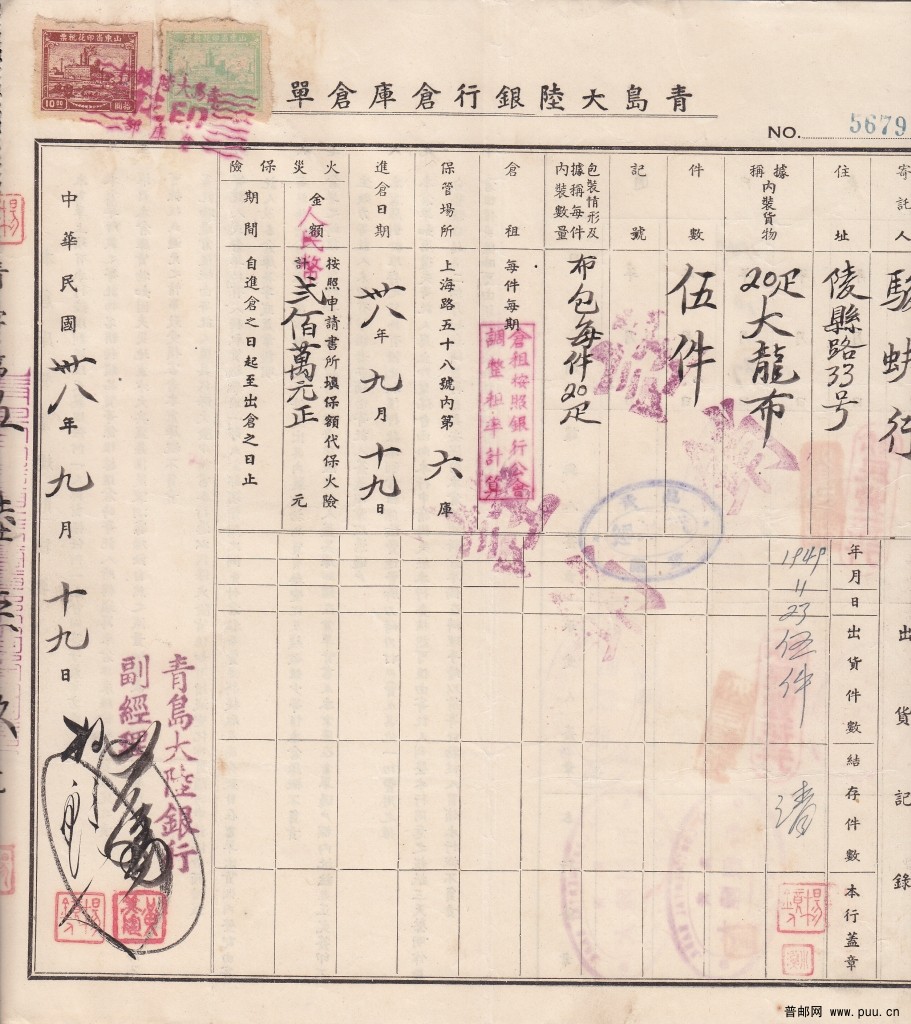 山東省印花稅票
10.00
山東省印花稅票
青島大陸銀行倉庫倉單
NO. 5679
寄託人
住址
陵縣路33号
據稱內裝貨物
20疋大龍布
件數
伍件
記號
包裝情形及據稱每件內裝數量
布包每件20疋
倉租
每件每期
倉租按照銀行公會
調整租率計算
保管場所
上海路五十八號內第六庫
進倉日期
卅八年九月十九日
火災保險
金額
人民幣
按照申請書所填保額代保火險
計弍佰萬元正
元
期間
自進倉之日起至出倉之日止
中華民國卅八年九月十九日
出貨記錄
年月日
出貨件數
結存件數
本行蓋章
1949
11
23
伍件
清
青島大陸銀行
副經理
普邮网 www.puu.cn